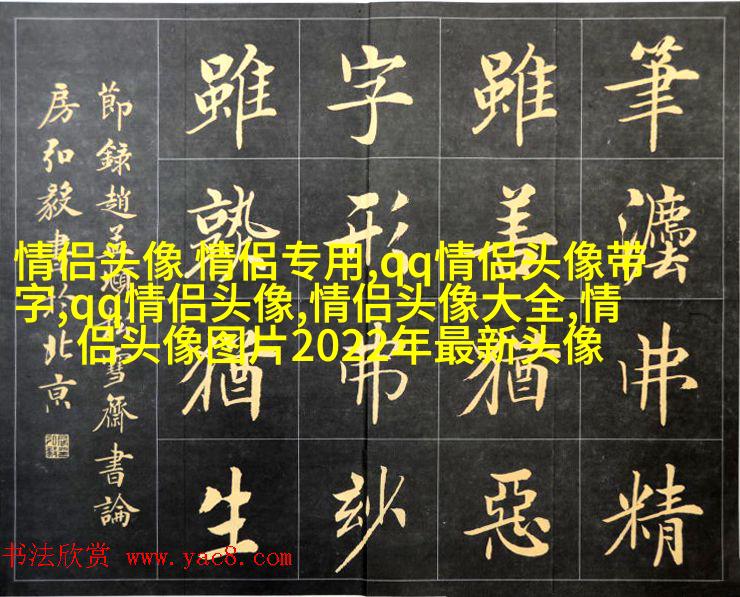 筆灋弗精
雖善猶惡
字形弗妙
雖熟猶生
節錄趙孟頫松雪齋書論
房弘毅書於北京
情侣头像 情侣专用,qq情侣头像带
字,qq情侣头像,情侣头像大全,情
侣头像图片2022年最新头像
书法欣赏 www.yac8.com